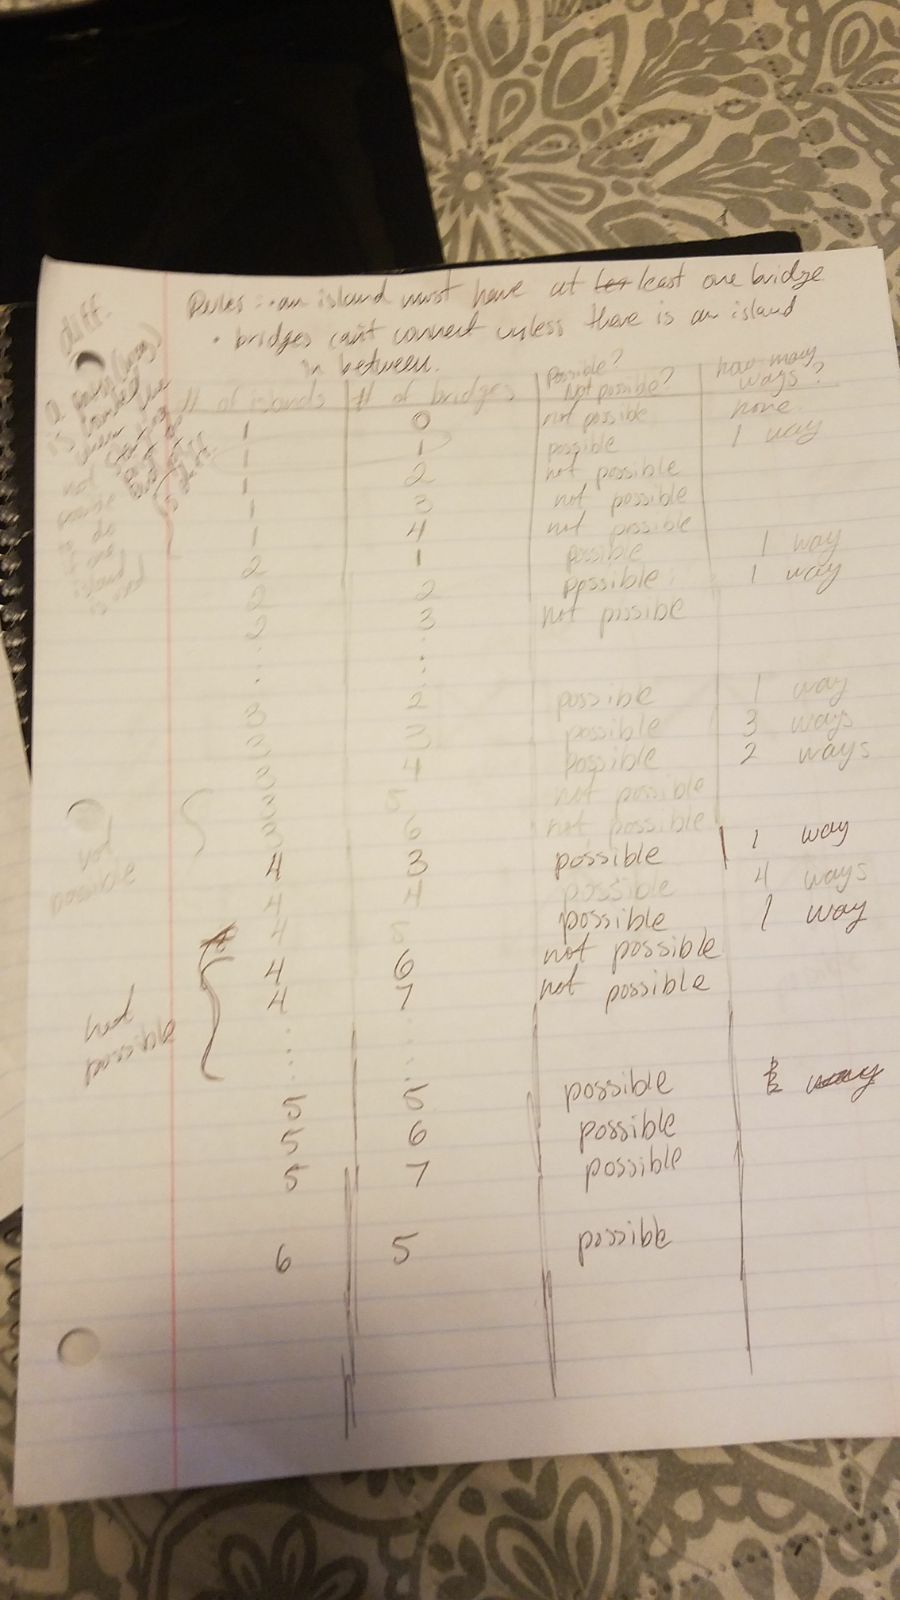 Rules: · an island must have at least one bridge
· bridges can't connect unless there is an island
in between.
diff.
a path (way)
is counted
when the
starting
not
# of islands # of bridges Possible? Not possible? how many ways?
1 0 not possible none.
1 1 possible 1 way
1 2 not possible
1 3 not possible
1 4 not possible
2 1 possible 1 way
2 2 possible 1 way
2 3 not pissibe
: :
3 2 possible 1 way
3 3 possible 3 ways
3 4 possible 2 ways
3 5 not possible
3 6 not possible
not
possible
4 3 possible 1 way
4 4 possible 4 ways
4 5 possible 1 way
4 6 not possible
4 7 not possible
not
possible
: :
5 5 possible way
5 6 possible
5 7 possible
6 5 possible